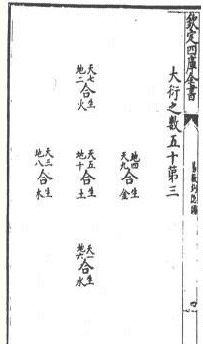 欽定四庫全書
大衍之數五十第三
地四生
合
天九金
天七生
合
地二火
天五生
合
地十土
天一生
合
地六水
天三生
合
地八木